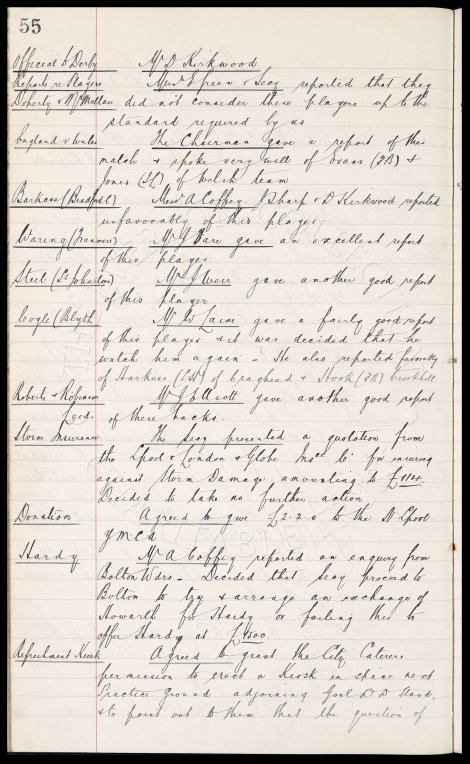 55
Official to Derby Mr D Kirkwood
Reports re Players Messrs E Green & Secy reported that they
Doherty & McMullan did not consider these players up to the
standard required by us
England v Wales The Chairman gave a report of this
match & spoke very well of Evans (FB) &
Jones of Welsh team
Barkass (Bradford C) Messrs A Coffey J Sharp & D Kirkwood reported
unfavourably of this player
Waring (Tranmere) Mr J Bare gave an excellent report
of this player
Steel (St Johnstone) Mr J Weir gave another good report
of this player
Coyle (Blyth) Mr W gave a fairly good report
of this player & it was decided that he
watch him again - He also reported favourably
of Harkus (LH) of Craghead & Hook (FB) Crookhall
Roberts & Robinson Mr J Elliott gave another good report
Leeds of these backs.
Storm Insurance The Secy presented a quotation from
the Lpool & London & Globe Insce Co for insuring
against Storm Damage amounting to £114.
Decided to take no further action
Donation Agreed to give £2-2-0 to the N. Lpool
YMCA
Hardy Mr A Coffey reported an enquiry from
Bolton Wdrs - Decided that Secy proceed to
Bolton to try & arrange an exchange of
Howarth for Hardy or failing this to
offer Hardy at £4500
Refreshment Kiosk Agreed to grant the City Caterers
permission to erect a Kiosk in space next
Practice Ground adjoining Goal DD Stand,
& to point out to them that the question of